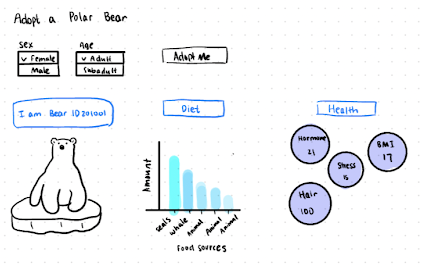 Adopt a Polar Bear
Sex
Age
v Female
Male
v Adult
Subadult
Adopt Me
I am Bear ID 201001
Diet
Health
Amount
seals
whale
Animal
Animal
Animal
Food Sources
Hormone
21
BMI
17
Stress
15
Hair
100